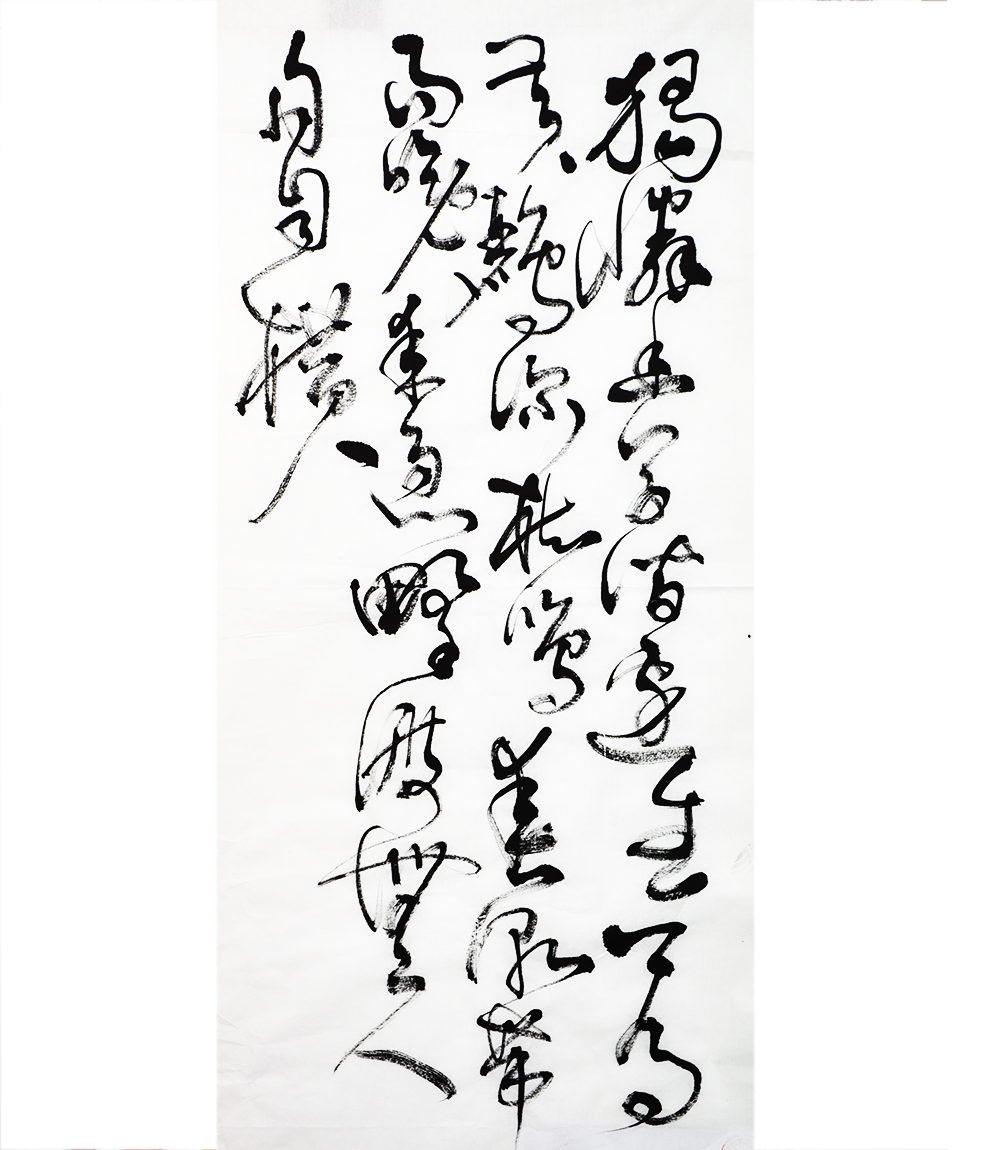 獨憐幽草澗邊生上有
黃鸝深樹鳴春潮帶
雨晚來急野渡無人
舟自橫